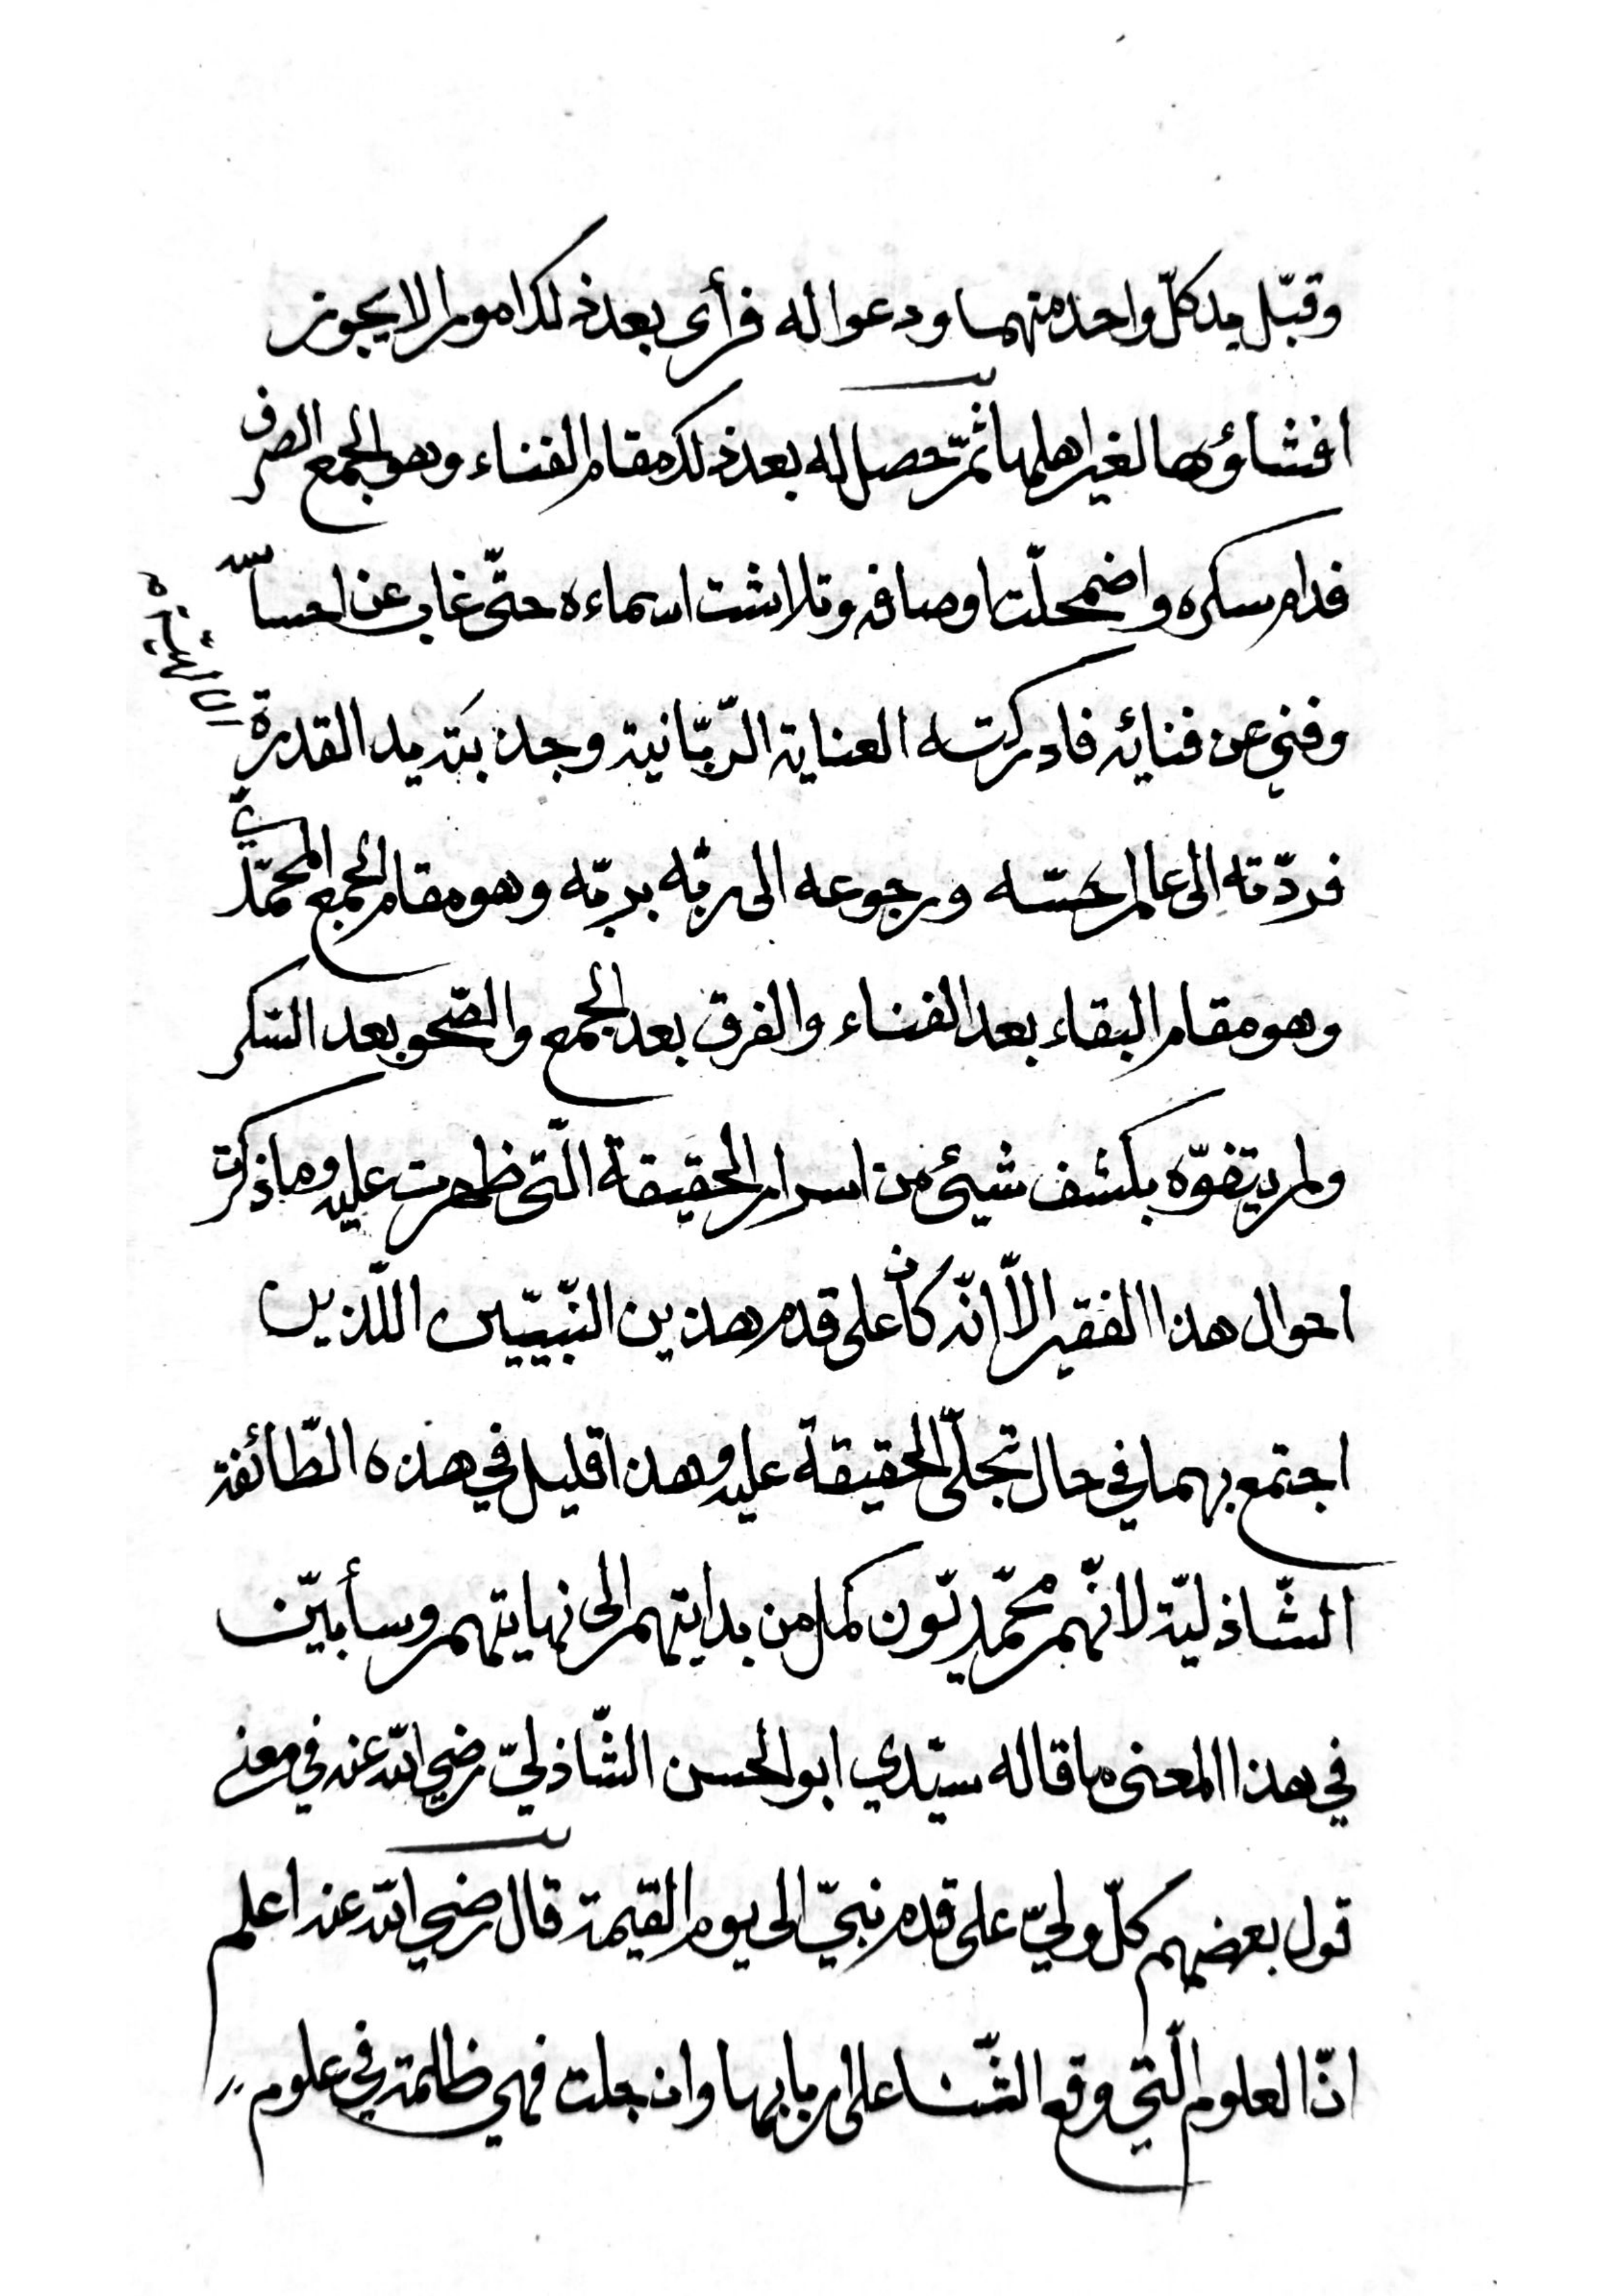 وقبّل يد كلّ واحد منهما ودعوا له فرأى بعد ذلك امورا لا يجوز
افشاؤها لغير اهلها ثمّ حصل له بعد ذلك مقام الفناء وهو الجمع الصرف
فدام سكره واضمحلّت اوصافه وتلاشت اسماءه حتّى غاب عن احساسه
وفني عن فنائه فادركته العناية الرّبّانية وجذبته يد القدرة
فردّته الى عالم حسّه ورجوعه الى ربّه بربّه وهو مقام الجمع المحمّديّ
وهو مقام البقاء بعد الفناء والفرق بعد الجمع والصّحو بعد السّكر
ولم يتفوّه بكشف شيئ من اسرار الحقيقة الّتى ظهرت عليه وما ذكرت
احوال هذا الفقير الاّ انّه كان على قدم هذين النّبيّين اللّذين
اجتمع بهما في حال تجلّى الحقيقة عليه وهذا قليل في هذه الطّائفة
الشّاذليّة لانّهم محمّديّون كمل من بدايتهم الى نهايتهم وسأبيّن
في هذا المعنى ما قاله سيّدي ابو الحسن الشّاذليّ رضي اللّه عنه في معنى
قول بعضهم كلّ وليّ على قدم نبيّ الى يوم القيمة قال رضي اللّه عنه اعلم
انّ العلوم الّتي وقع الثّنا على اربابها وان جلت فهي ظلمة في علوم